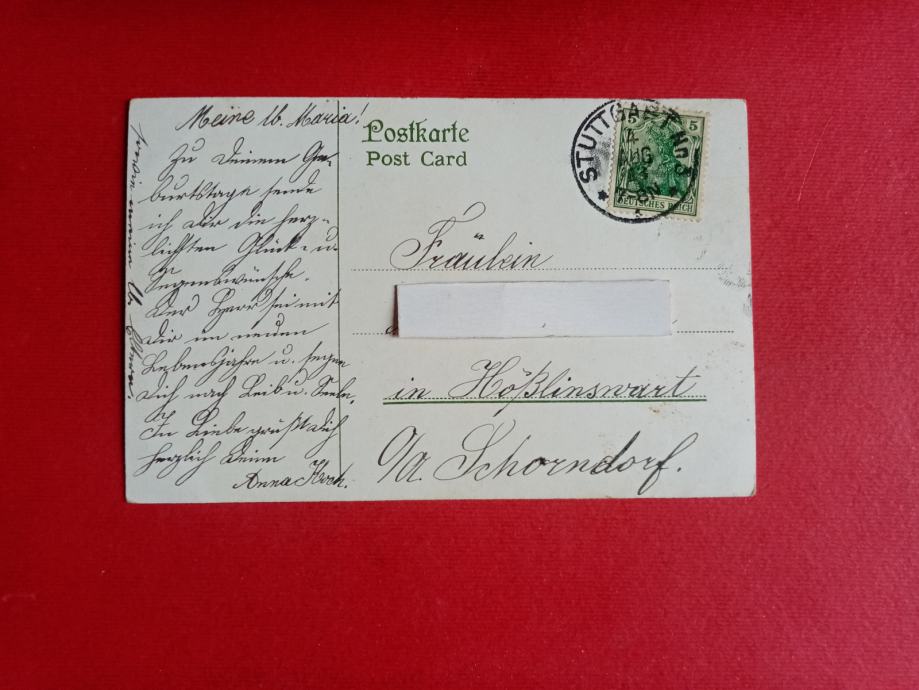 Meine lb. Maria!
Zu Deinem Ge-
burtstage sende
ich Dir die herz-
lichsten Glück- u.
Segenswünsche.
Der Herr sei mit
Dir im neuen
Lebensjahre u. segne
Dich nach Leib u. Seele.
In Liebe grüßt Dich
herzlich Deine
Anna
Postkarte
Post Card
STUTTGART No 3
AUG
7-8N
5 5
DEUTSCHES REICH
Fräulein
in Hößlinswart
O/A. Schorndorf.